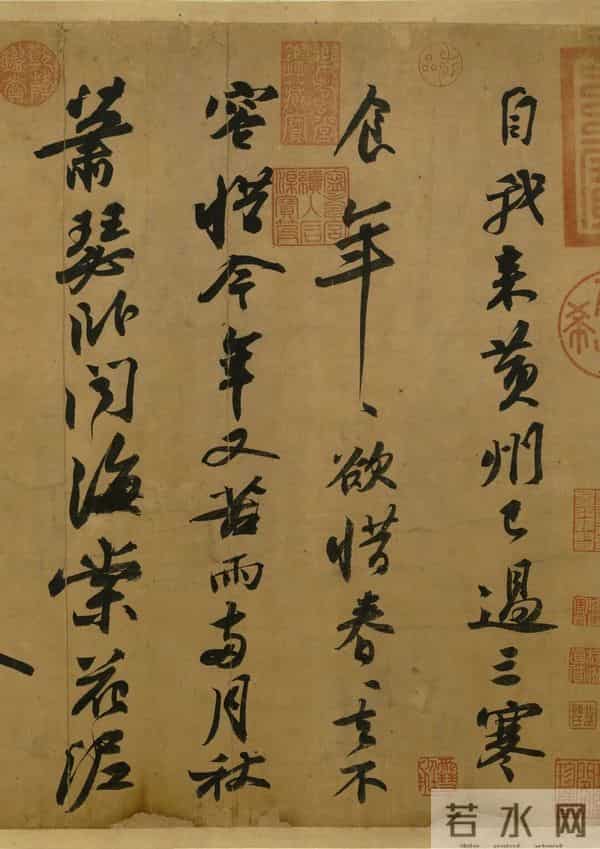 自我来黄州已過三寒
食年〻欲惜春〻去不
容惜今年又苦雨兩月秋
蕭瑟卧聞海棠花泥
若水网